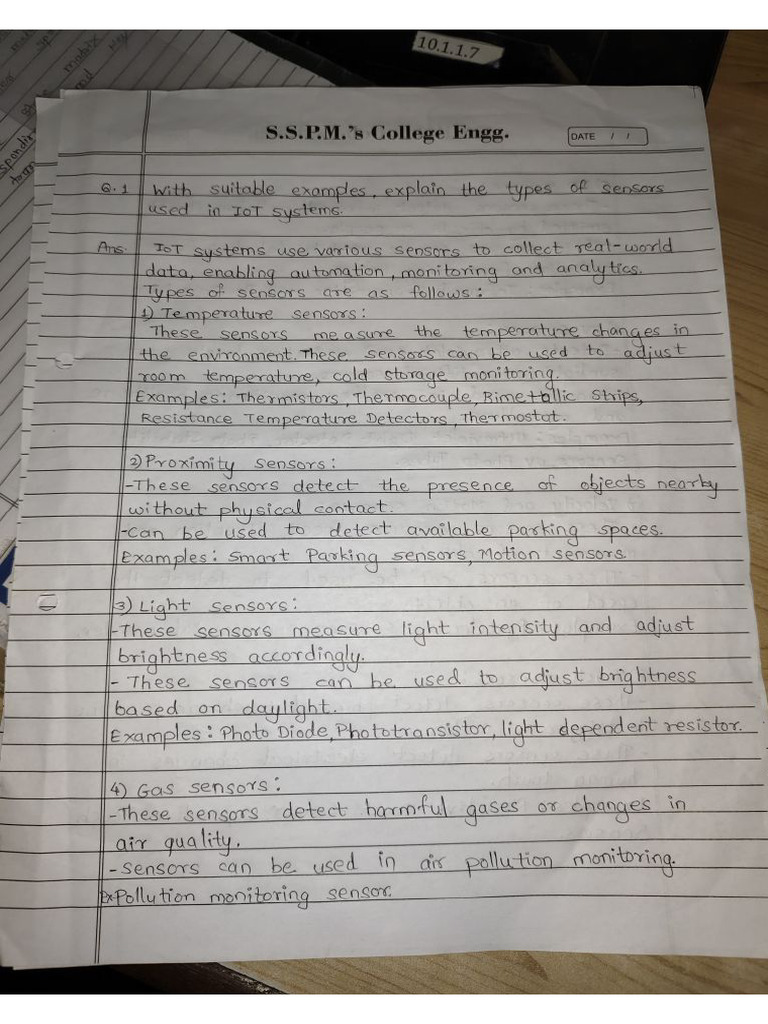 10.1.1.7
S.S.P.M.'s College Engg.
DATE / /
Q.1 With suitable examples, explain the types of sensors
used in IoT systems.
Ans. IoT systems use various sensors to collect real-world
data, enabling automation, monitoring and analytics.
Types of sensors are as follows:
1) Temperature sensors:
These sensors measure the temperature changes in
the environment. These sensors can be used to adjust
room temperature, cold storage monitoring.
Examples: Thermistors, Thermocouple, Bimetallic Strips,
Resistance Temperature Detectors, Thermostat.
2) Proximity sensors:
-These sensors detect the presence of objects nearby
without physical contact.
-Can be used to detect available parking spaces.
Examples: Smart Parking sensors, Motion sensors.
3) Light sensors:
-These sensors measure light intensity and adjust
brightness accordingly.
- These sensors can be used to adjust brightness
based on daylight.
Examples: Photo Diode, Phototransistor, light dependent resistor.
4) Gas sensors:
-These sensors detect harmful gases or changes in
air quality.
-Sensors can be used in air pollution monitoring.
Ex Pollution monitoring sensor.